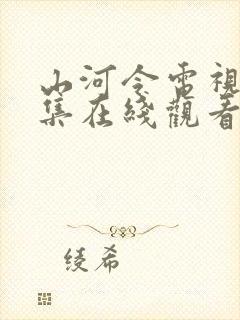 山河令電視
集在綫觀看
綾希